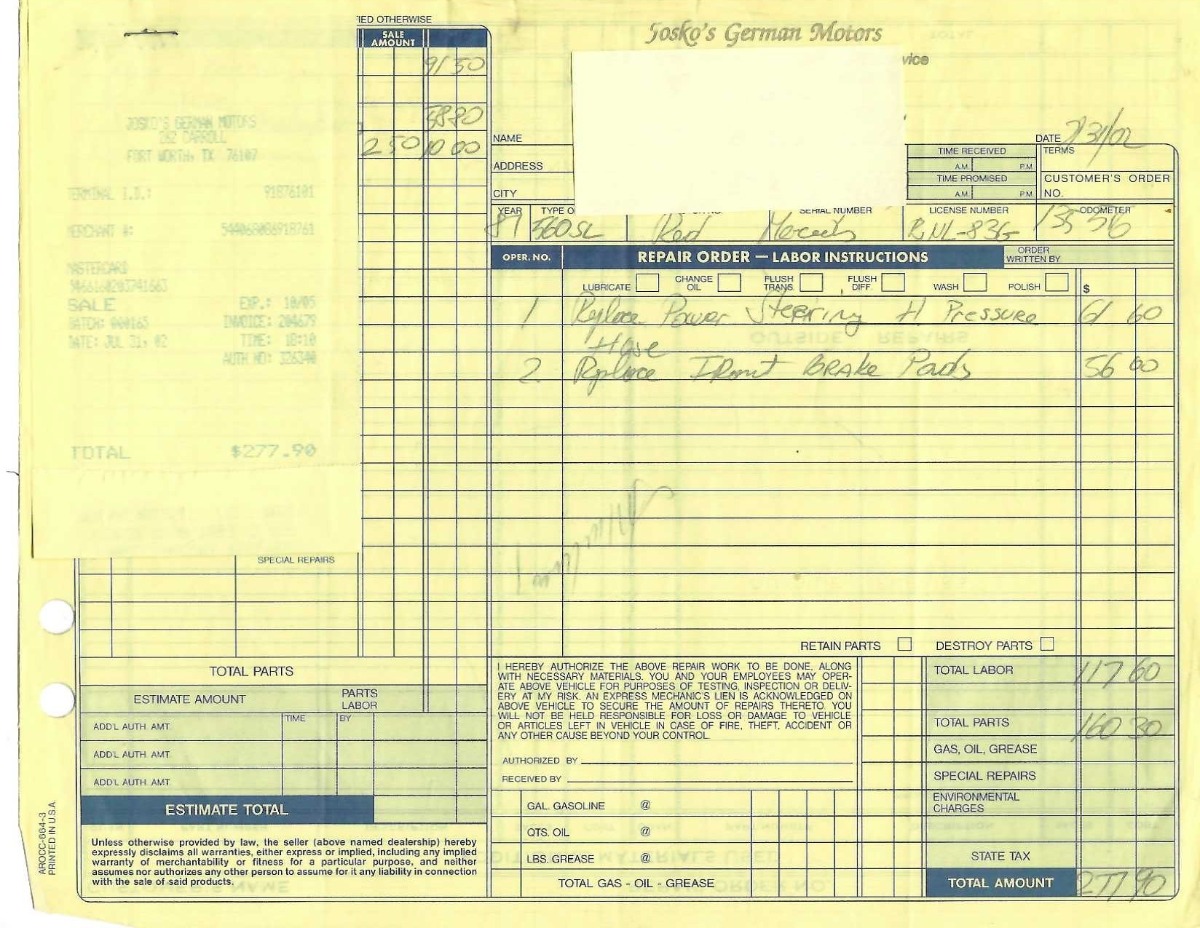 IED OTHERWISE
SALE AMOUNT
91 50
58 80
2 50 10 00
JOSKO'S GERMAN MOTORS
CARROLL
FORT WORTH, TX 76107
TERMINAL I.D.: 91876101
MERCHANT #:
MASTERCARD
SALE EXP.: 10/05
BATCH: 000165 INVOICE: 204679
DATE: JUL 31, 02 TIME: 18:10
AUTH NO: 326340
TOTAL $277.90
SPECIAL REPAIRS
TOTAL PARTS
ESTIMATE AMOUNT PARTS LABOR
ADD'L AUTH. AMT. TIME BY
ADD'L AUTH. AMT.
ADD'L AUTH. AMT.
ESTIMATE TOTAL
Unless otherwise provided by law, the seller (above named dealership) hereby
expressly disclaims all warranties, either express or implied, including any implied
warranty of merchantability or fitness for a particular purpose, and neither
assumes nor authorizes any other person to assume for it any liability in connection
with the sale of said products.
AROCC-664-3
PRINTED IN U.S.A.
Josko's German Motors
vice
NAME
DATE 7/31/02
ADDRESS
CITY
TIME RECEIVED
A.M. P.M.
TIME PROMISED
A.M. P.M.
TERMS
CUSTOMER'S ORDER NO.
YEAR TYPE O SERIAL NUMBER LICENSE NUMBER ODOMETER
87 560SL Red Mercedes RNL-83G
OPER. NO. REPAIR ORDER — LABOR INSTRUCTIONS ORDER WRITTEN BY
LUBRICATE CHANGE OIL FLUSH TRANS. FLUSH DIFF. WASH POLISH $
1 Replace Power Steering H Pressure 61 60
Hose
2 Replace Front BRAKE Pads 56 00
RETAIN PARTS DESTROY PARTS
I HEREBY AUTHORIZE THE ABOVE REPAIR WORK TO BE DONE, ALONG
WITH NECESSARY MATERIALS. YOU AND YOUR EMPLOYEES MAY OPER-
ATE ABOVE VEHICLE FOR PURPOSES OF TESTING, INSPECTION OR DELIV-
ERY AT MY RISK. AN EXPRESS MECHANIC'S LIEN IS ACKNOWLEDGED ON
ABOVE VEHICLE TO SECURE THE AMOUNT OF REPAIRS THERETO. YOU
WILL NOT BE HELD RESPONSIBLE FOR LOSS OR DAMAGE TO VEHICLE
OR ARTICLES LEFT IN VEHICLE IN CASE OF FIRE, THEFT, ACCIDENT OR
ANY OTHER CAUSE BEYOND YOUR CONTROL.
AUTHORIZED BY
RECEIVED BY
GAL. GASOLINE @
QTS. OIL @
LBS. GREASE @
TOTAL GAS - OIL - GREASE
TOTAL LABOR 117 60
TOTAL PARTS 160 30
GAS, OIL, GREASE
SPECIAL REPAIRS
ENVIRONMENTAL CHARGES
STATE TAX
TOTAL AMOUNT 277 90